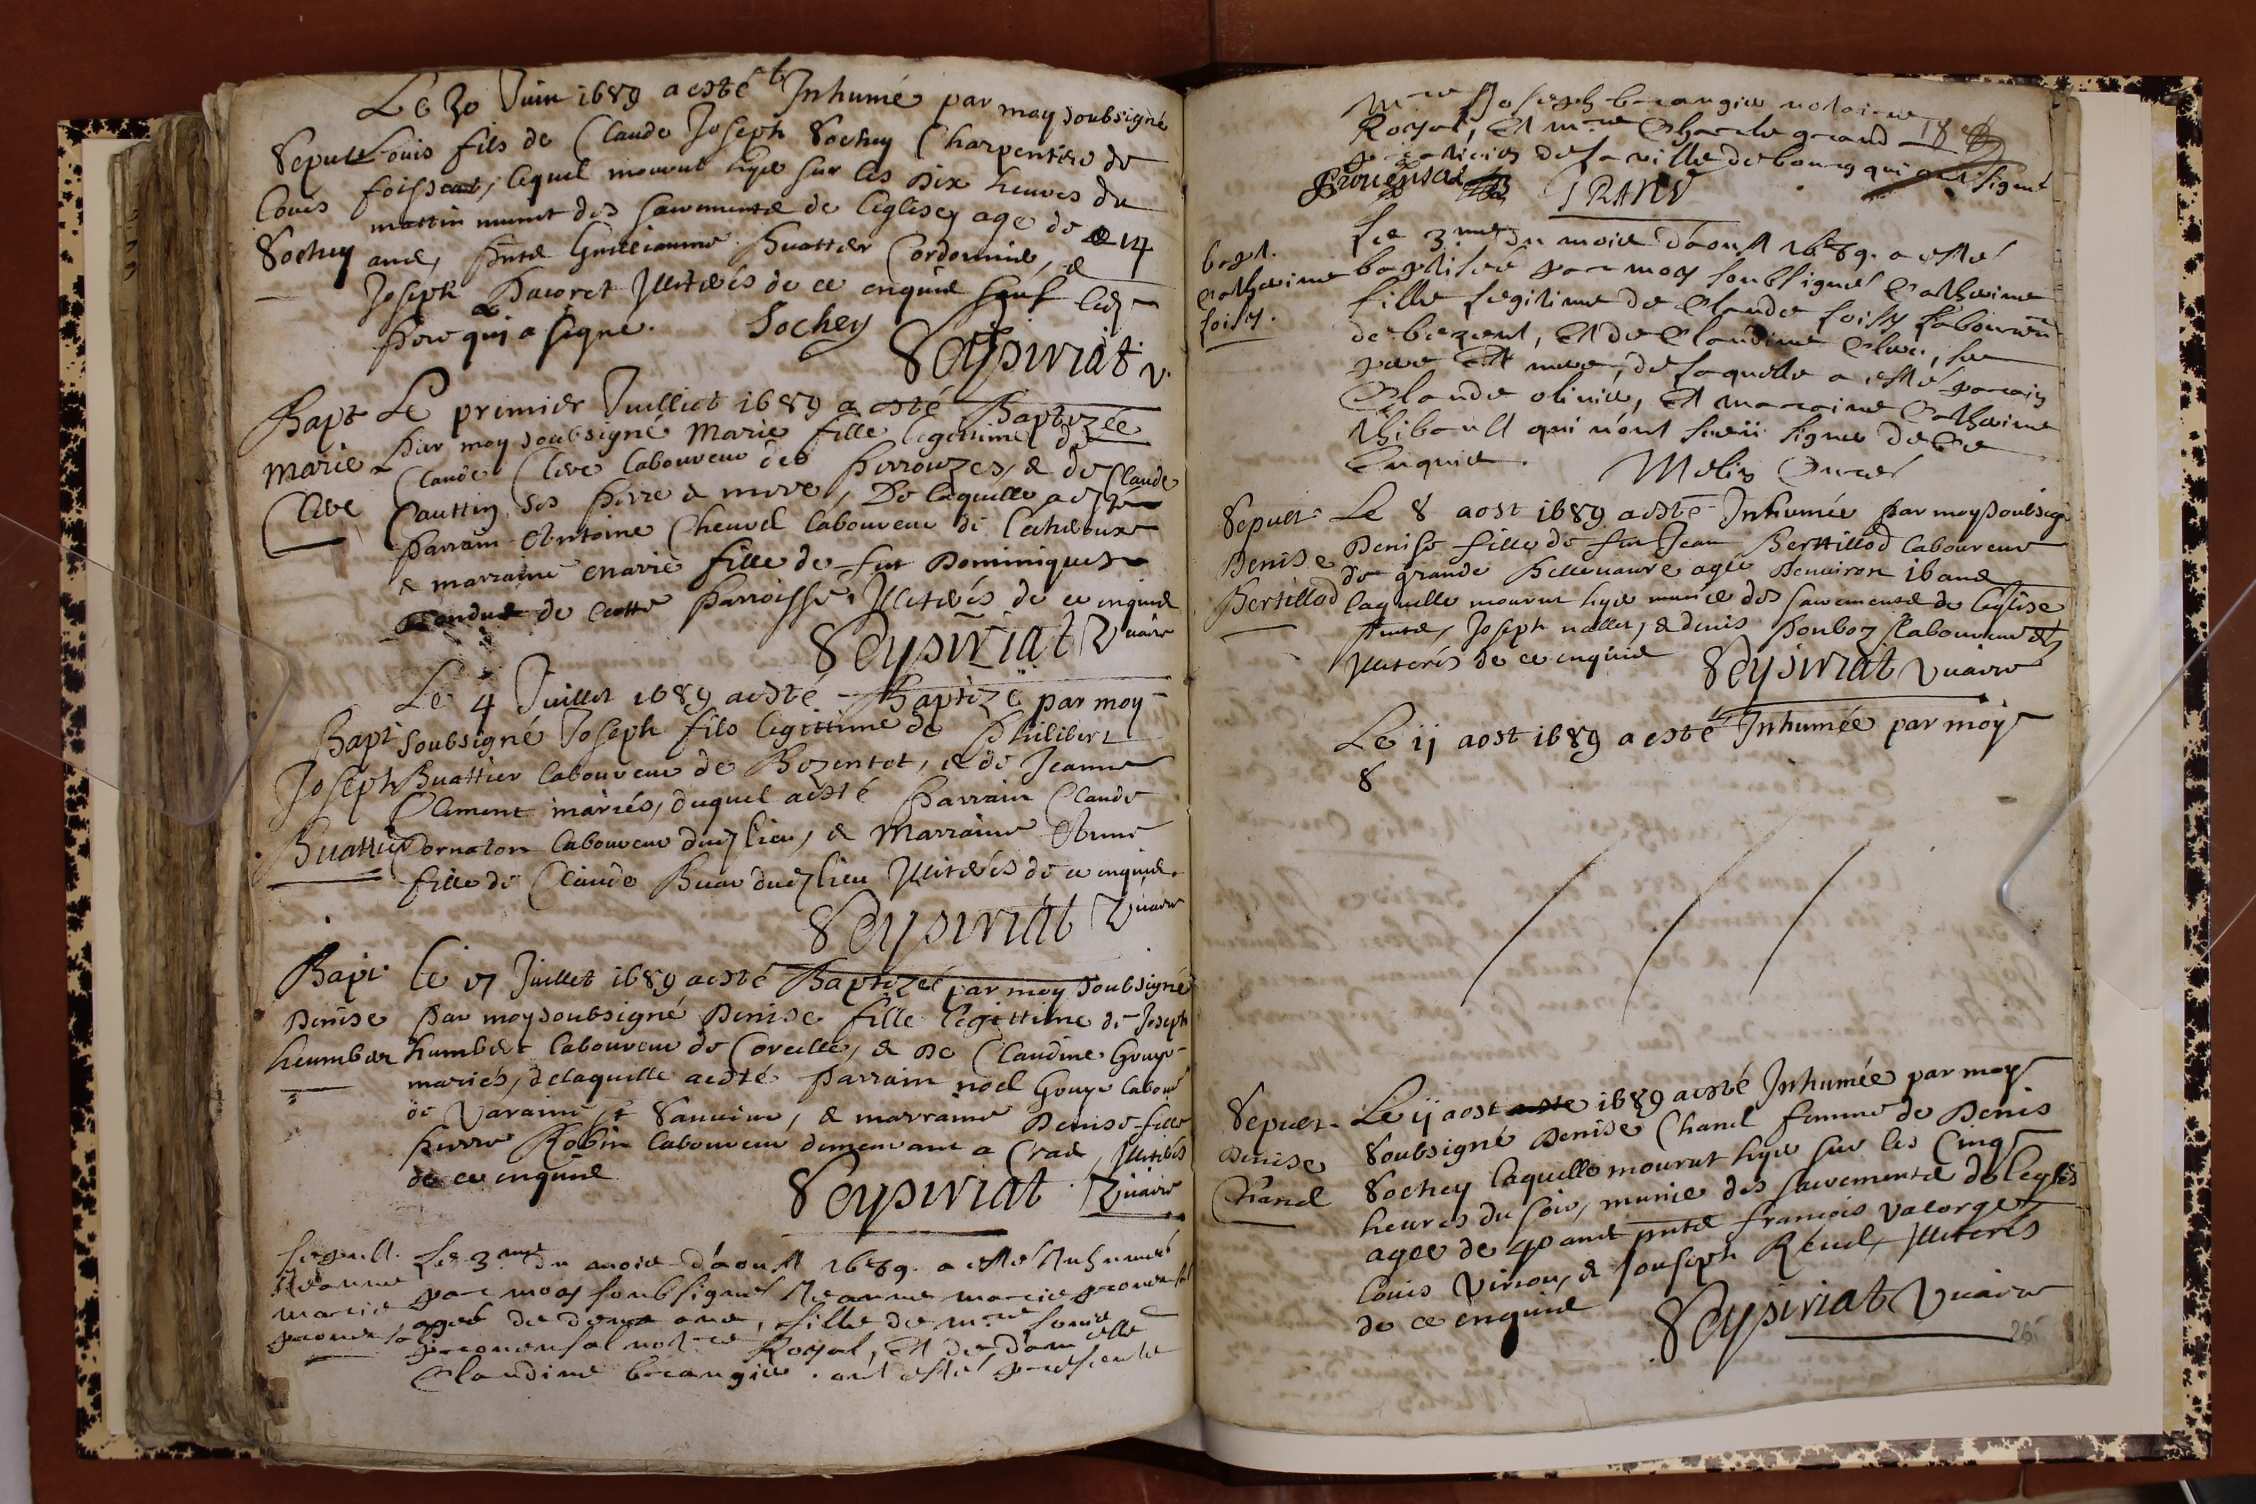 Le 30 Juin 1689 a esté Inhumé par moy soubsigné
Sepult Louis fils de Claude Joseph Sochey Charpentier de
Louis foissiat, lequel mourut hyer sur les dix heures du
mattin munit des sacrements de leglise, agé de 14
Sochey ans, pnts Guilliaume Buattier Cordonnier, &
Joseph Pacoret Illiterés de ce enquis sauf led
pere qui a signé. Sochey
Veysiriat v.
Bapt Le premier Juilliet 1689 a esté Baptizée
Marie par moy soubsigné Marie fille legittime de
Claude Clere laboureur des Perrouzes, & de Claude
Clere Cauttin ses pere & mere, De laquelle a esté
parrain Antoine Chevrel laboureur de
& marraine marie fille de fut Dominique
de cette parroisse, Illiterés de ce enquis
Veysiriat Vicaire
Le 4 Juillet 1689 a esté Baptizé par moy
Bapt soubsigné Joseph fils legittime de Philibert
Joseph Buattier laboureur de Bezentet, & de Jeanne
Clement mariés, duquel a esté parrain Claude
Buattier Cornaton laboureur dud lieu, & Marraine Anne
fille de Claude Buar dud lieu Illiterés de ce enquis.
Veysiriat Vicaire
Bapt le 17 Juillet 1689 a esté Baptizée par moy soubsigné
Denise par moy soubsigné Denise fille legittime de Joseph
heumber humbert laboureur de Coreille, & De Claudine Gouye
mariés, delaquelle a esté parrain noel Gouye labour
de Varaine, & marraine Denise fille
pierre Robin laboureur demeurant a Cras, Illiterés
de ce enquis
Veysiriat Vicaire
Sepult. Le 3me du mois d'aoust 1689. a esté Inhumée
Jeanne
marie par moy soubsigné Jeanne marie provensal
provensal agée de deux ans, fille de mre Louis
provensal notre Royal, Et de damelle
Claudine brangier. ont estés presents
Mre Joseph brangier notaire
Royal, Et mre Charle grand 18
praticien de la ville de bourg qui ont signé
Provensal GRAND
bapt. Le 3me du mois d'aoust 1689. a esté
Catherine baptisée par moy soubsigné Catherine
foisy. fille legitime de Claude foisy laboureur
de bezent, Et de Claudine Clere, ses
pere Et mere, de laquelle a esté parain
Claude olivier, Et maraine Catherine
Thibault qui n'ont sceu signer de ce
Enquis. Melin Curé
Sepult Le 8 aost 1689 a esté Inhumée par moy soubsig
Denise Denise fille de fut Jean Berttillod laboureur
de grande Bellevavre agée denviron 16 ans
Bertillod laquelle mourut hyer munie des sacrements de leglise
pnts, Joseph nallet, & denis Bonboz laboureurs
Illiterés de ce enquis Veysiriat Vicaire
Le 11 aost 1689 a esté Inhumée par moy
8
Sepult Le 11 aost 1689 a esté Inhumée par moy
Denise soubsigné Denise Chanel femme de Denis
Chanel Sochey laquelle mourut hyer sur les Cinq
heures du soir, munie des sacrements de leglise
agee de 40 ans pnts francois Vacorget
Louis Viriou, & Jouseph Réüel, Illiterés
de ce enquis Veysiriat Vicaire
26